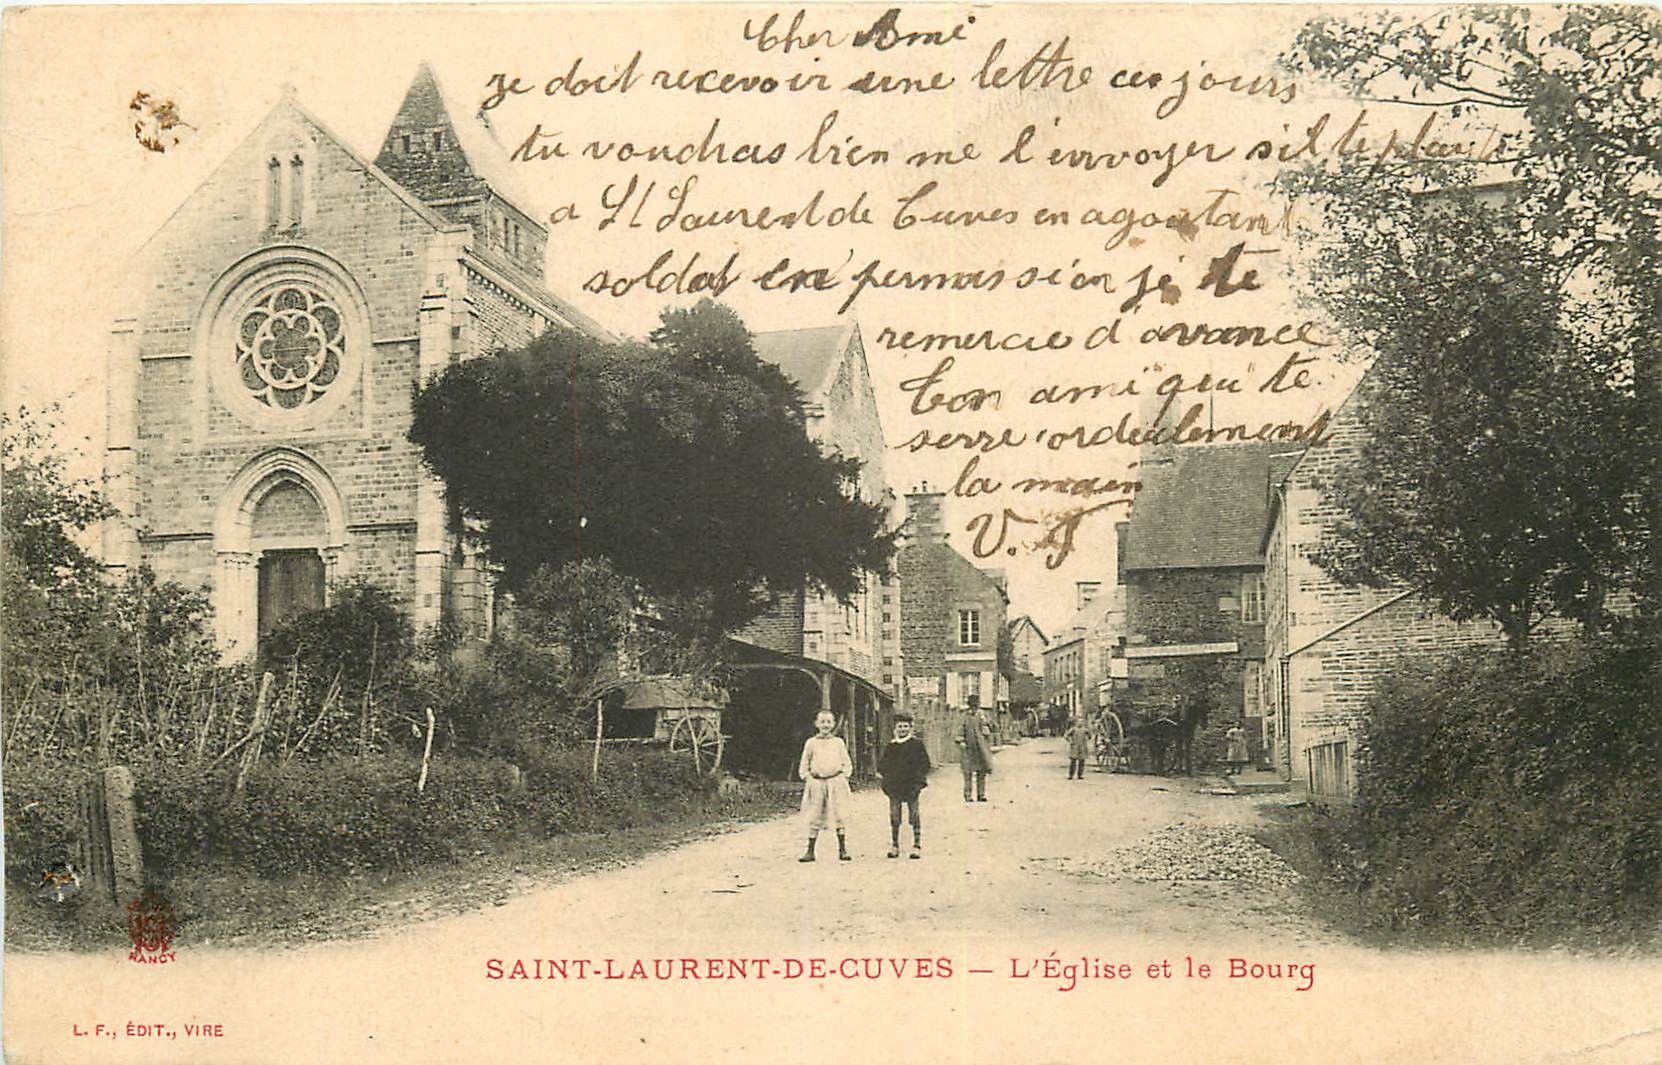 Cher Ami
je doit recevoir une lettre ces jours
tu voudras bien me l'envoyer sil te plait
a St Laurent de Cuves en agoutant
soldat en permission je te
remercie d'avance
Ton ami qui te
serre cordealement
la main
V. T
NANCY
SAINT-LAURENT-DE-CUVES — L'Église et le Bourg
L. F., ÉDIT., VIRE